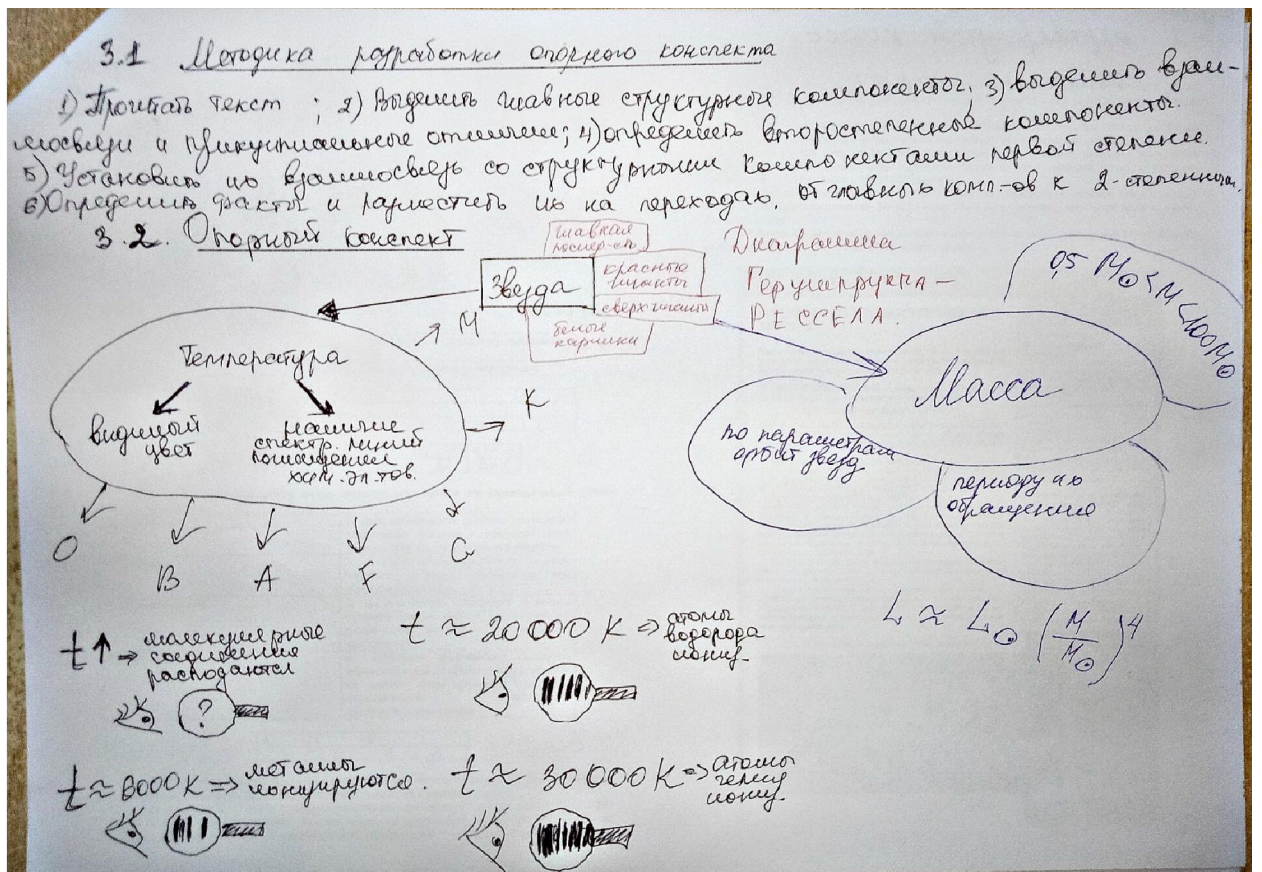 3.1 Методика разработки опорного конспекта
1) Прочитать текст; 2) Выделить главные структурные компоненты; 3) выделить взаи-
мосвязи и принципиальные отличия; 4) определить второстепенные компоненты.
5) Установить их взаимосвязь со структурными компонентами первой степени.
6) Определить факты и разместить их на переходах, от главных комп-ов к 2-степенным.
3.2. Опорный конспект
главная
послед-сть
Звезда
красные
гиганты
сверхгиганты
белые
карлики
Диаграмма
Герцшпрунга –
РЕССЕЛА.
0,5 M⊙ < M < 100 M⊙
Температура
видимый
цвет
наличие
спектр. линий
поглощения
хим. эл-тов.
M
K
O
B
A
F
G
Масса
по параметрам
орбит звезд
периоду их
обращения
L ≈ L⊙ (M/M⊙)⁴
t↑ ⇒ молекулярные
соединения
распадаются
?
t ≈ 20 000 K ⇒ атомы
водорода
иониз.
t ≈ 8000 K ⇒ металлы
ионизируются.
t ≈ 30 000 K ⇒ атомы
гелия
иониз.